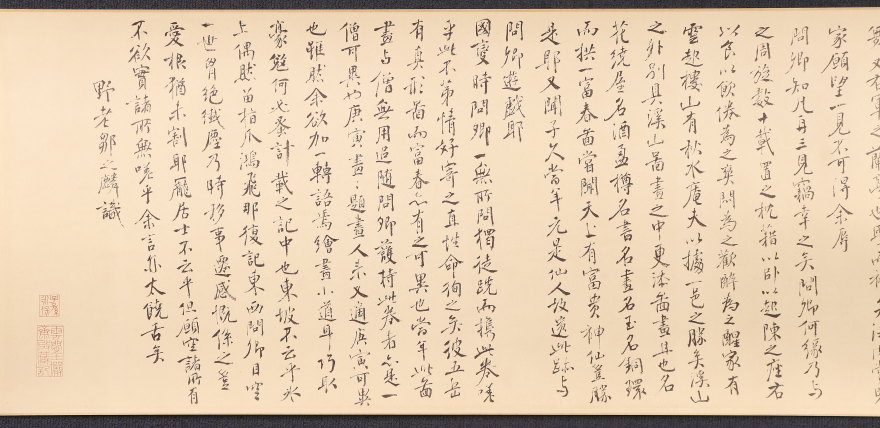 舞又右軍之蘭亭也聖而神矣海內賞
家願望一見不可得余辱
問卿知凡再三見竊幸之矣問卿何緣乃與
之周旋數十載置之枕藉以臥以起陳之座右
以食以飲倦為之爽悶為之歡醉為之醒家有
雲起樓山有秋水庵夫以據一邑之勝矣溪山
之外別具溪山圖畫之中更添圖畫且也名
花繞屋名酒盈樽名書名畫名玉名銅環
而拱一富春圖嘗聞天上有富貴神仙豈勝
是耶又聞子久當年元是仙人故遺此跡與
問卿遊戲耶
國變時問卿一無所問獨徒跣而攜此卷嗟
乎此不第情好寄之直性命徇之矣彼五岳
有真形圖而富春亦有之可異也當年此圖
畫與僧無用追隨問卿護持此卷者亦是一
僧可異也庚寅畫畫題畫人來又適庚寅可異
也雖然余欲加一轉語焉繪畫小道耳巧取
豪奪何必蚤計載之記中也東坡不云乎冰
上偶然留指爪鴻飛那復記東西問卿目空
一世胸絕纖塵乃時移事遷感慨係之豈
愛根猶未割耶龐居士不云乎但願空諸所有
不欲實諸所無嗟乎余言亦太饒舌矣
野老鄒之麟識